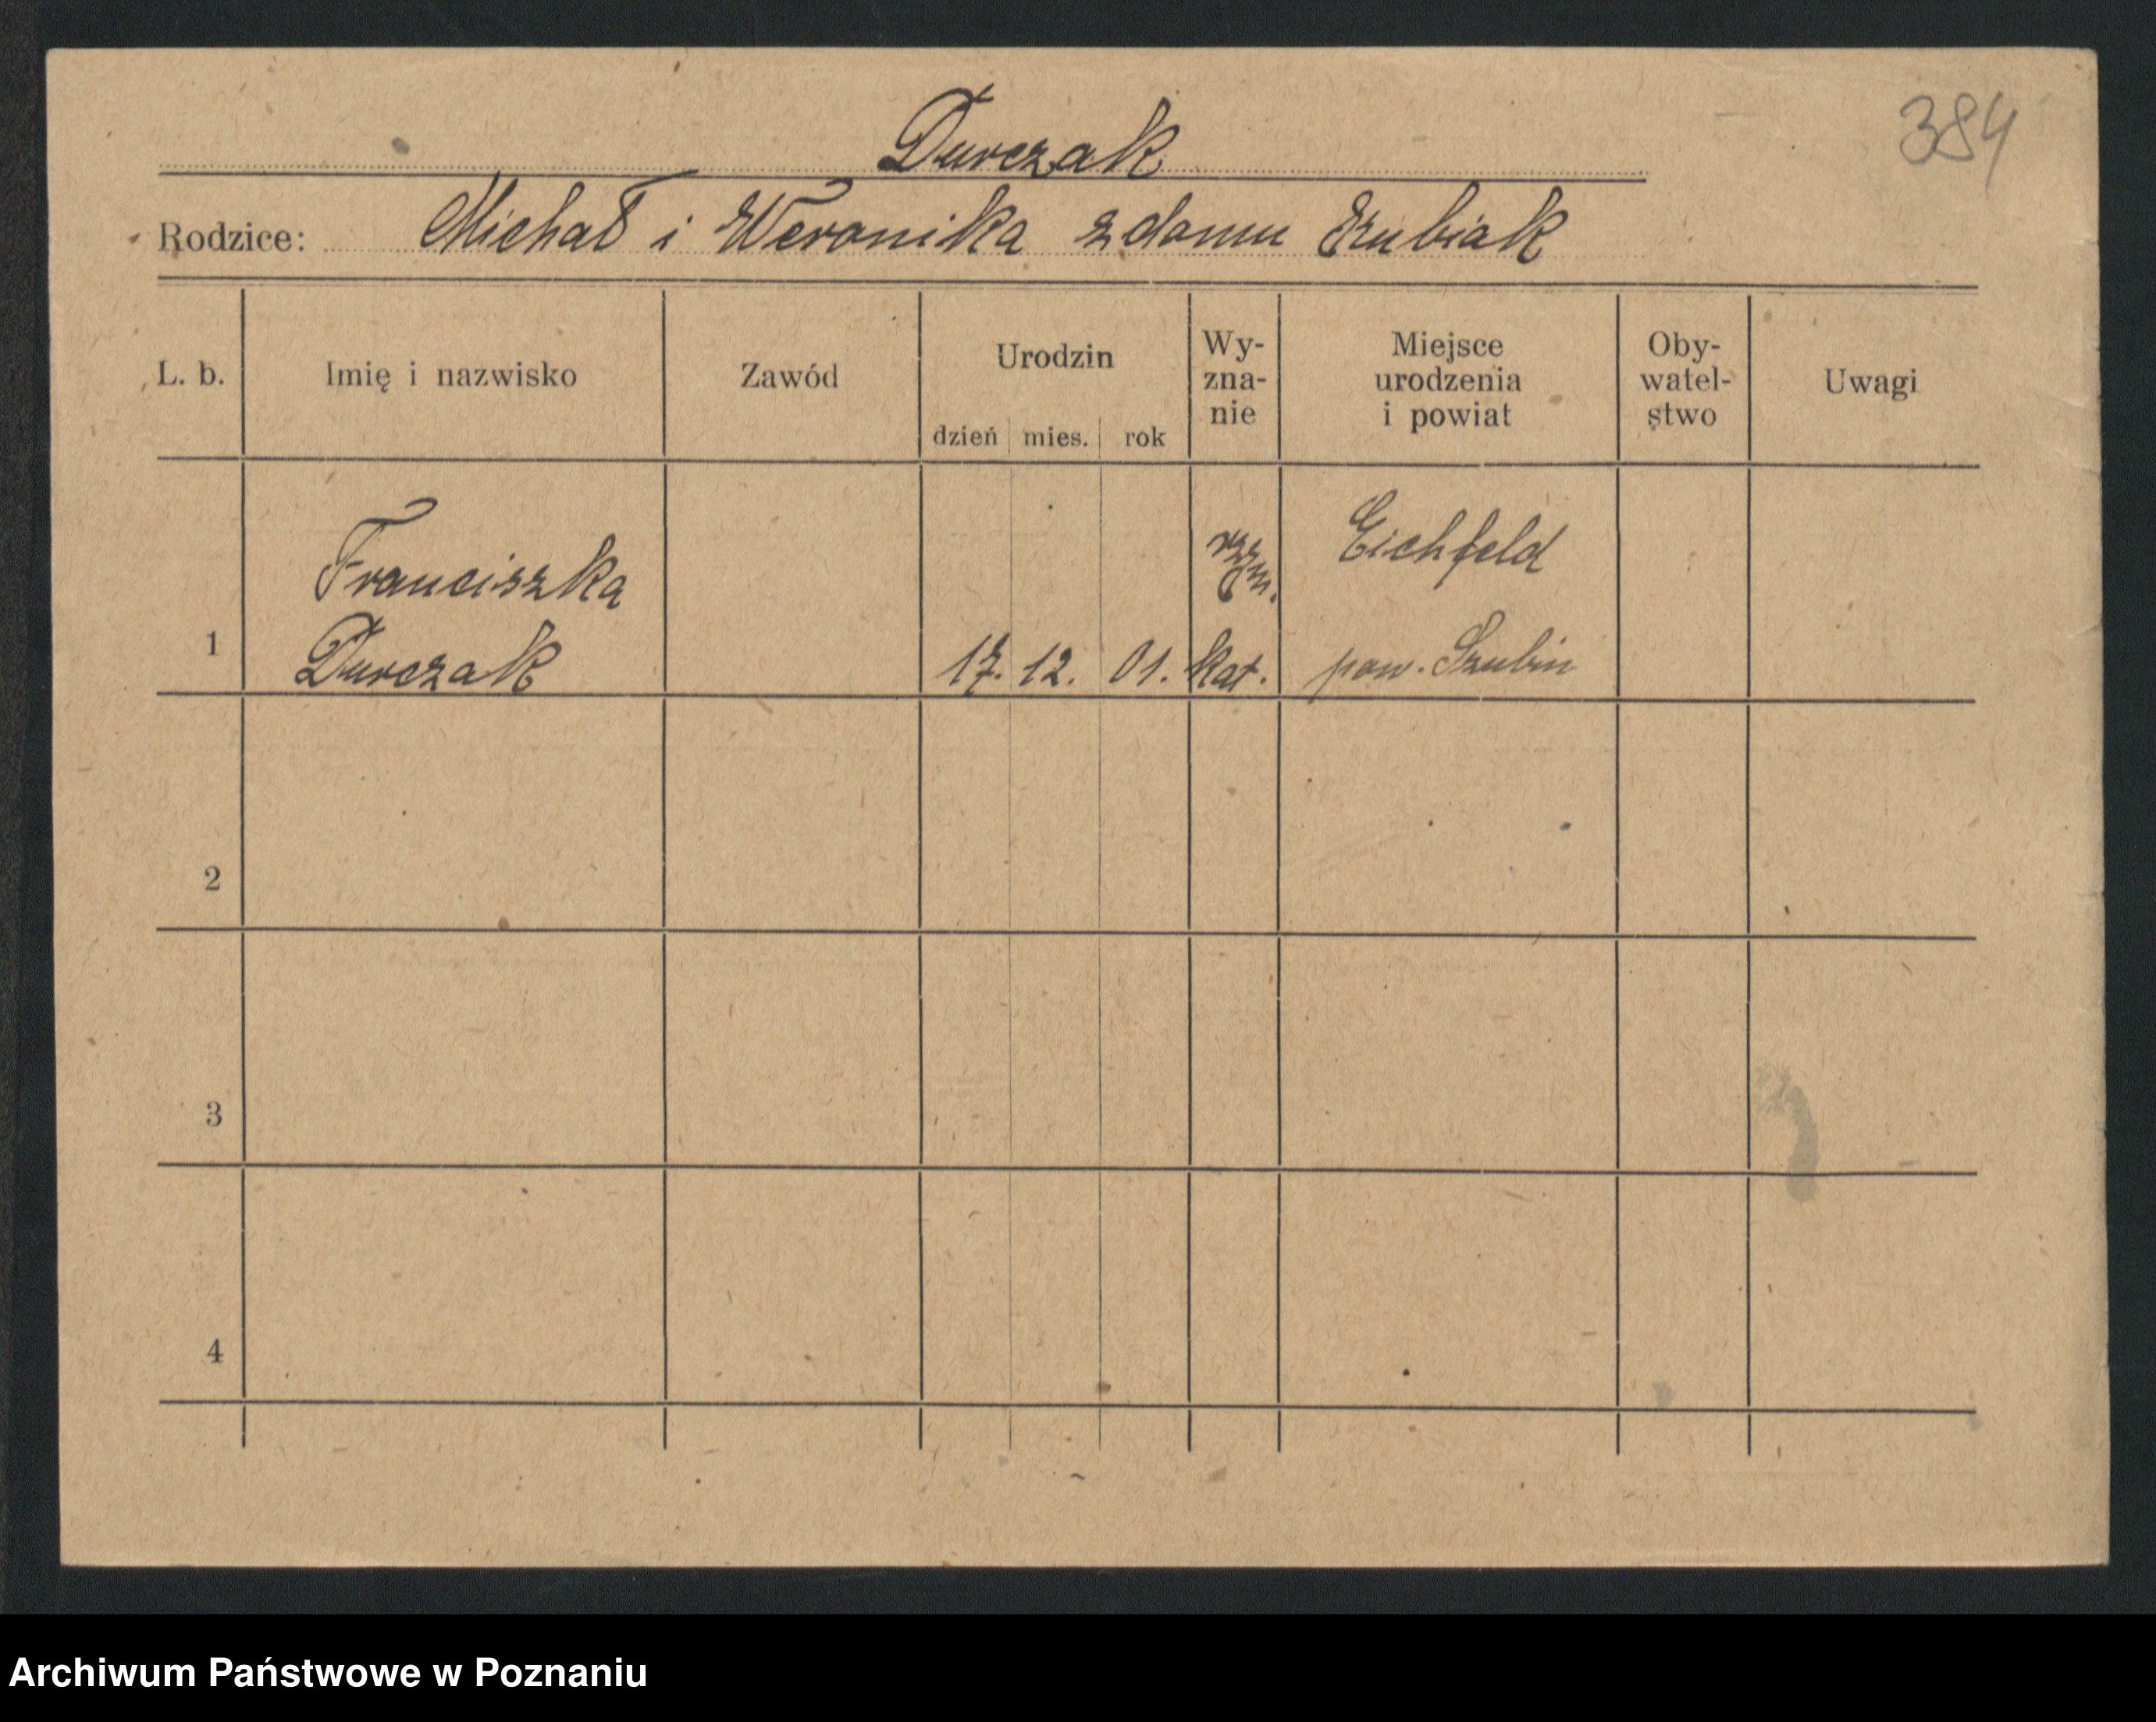 384
Durczak
Rodzice: Michał i Weronika z domu
L. b. Imię i nazwisko Zawód Urodzin dzień mies. rok Wy-zna-nie Miejsce urodzenia i powiat Oby-watel-stwo Uwagi
Franciszka rzym. Eichfeld
1 Durczak 17. 12. 01. kat. pow. Szubin
2
3
4
Archiwum Państwowe w Poznaniu